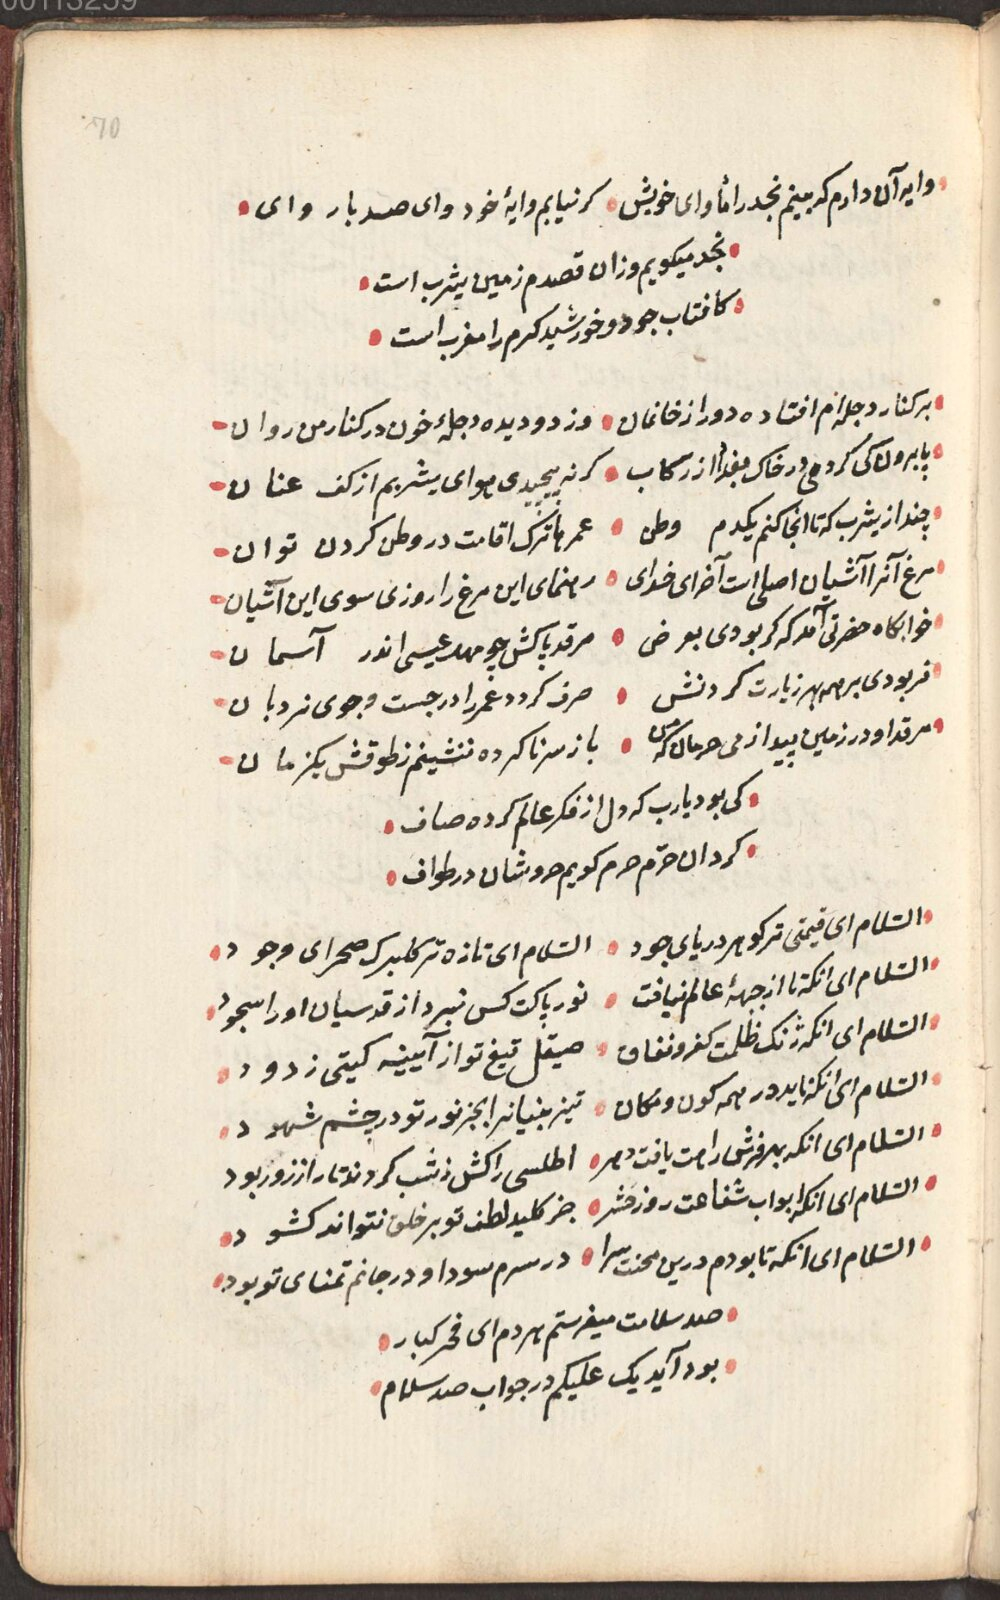 00113259
70
وایه آن دارم که بینم نجد را مأوای خویش • کر نیابم وایهٔ خود وای صد بار وای •
• نجد میکویم وزان قصدم زمین یثرب است •
• کافتاب جود و خورشید کرم را مغرب است •
• بر کنار دجله‌ام افتاده دور از خانمان • وز دو دیده دجلهٔ خون در کنار من روان
• پا برون کی کردمی در خاک بغداد از رکاب • کر نه پیچیدی هوای یثربم از کف عنان
• چند از یثرب که تا انجا کنم یکدم وطن • عمرها ترک اقامت در وطن کردن توان
• مرغ آنرا آشیان اصلی است آخر ای خدای • رهنمای این مرغ را روزی سوی این آشیان
• خوابکاه حضرتی آمد که کر بودی بعرض • مرقد پاکش چو مهد عیسی اندر آسمان
• فر بودی بر همه بهر زیارت کردنش • صرف کردد عمر را در جست وجوی نردبان
• مرقد او در زمین پیدا زمی حرمان که من • باز سر ناکرده ننشینم ز طوفش یکزمان
• کی بود یارب که دل از فکر عالم کرده صاف •
• کردان حرّم حرم کویم خروشان در طواف •
• السّلام ای قیمتی تر کوهر دریای جود • السّلام ای تازه تر کلبرک صحرای وجود •
• السّلام ای انکه تا از جبههٔ عالم نیافت • نور پاکت کس نبرد از قدسیان او را سجود •
• السّلام ای انکه ژنک ظلمت کفر و نفاق • صیقل تیغ تو از آیینه کیتی زدود •
• السّلام ای انکه ناید در همه کون و مکان • تیز بینیان را بجز نور تو در چشم شهود •
• السّلام ای انکه بهر فرش راهت یافت دهر • اطلسی راکش ز شب کردند تار از زور بود
• السّلام ای انکه ابواب شفاعت روز حشر • جز کلید لطف تو بر خلق نتواند کشود •
• السّلام ای انکه تا بودم درین محنت سرا • در سرم سودا و در جانم تمنای تو بود •
• صد سلامت میفرستم هر دم ای فخر کبار •
• بود آید یک علیکم در جواب صد سلام •